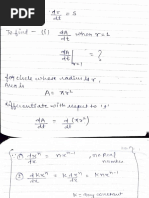 dr/dt = 5
To find – (i) dA/dt when r=2
dA/dt |r=2 = ?
for circle where radius is r,
Area is A = πr²
differentiate with respect to 't'
dA/dt = d/dt (πr²)
① dxⁿ/dx = nxⁿ⁻¹
number
② dkxⁿ/dx = k dxⁿ/dx = knxⁿ⁻¹
constant